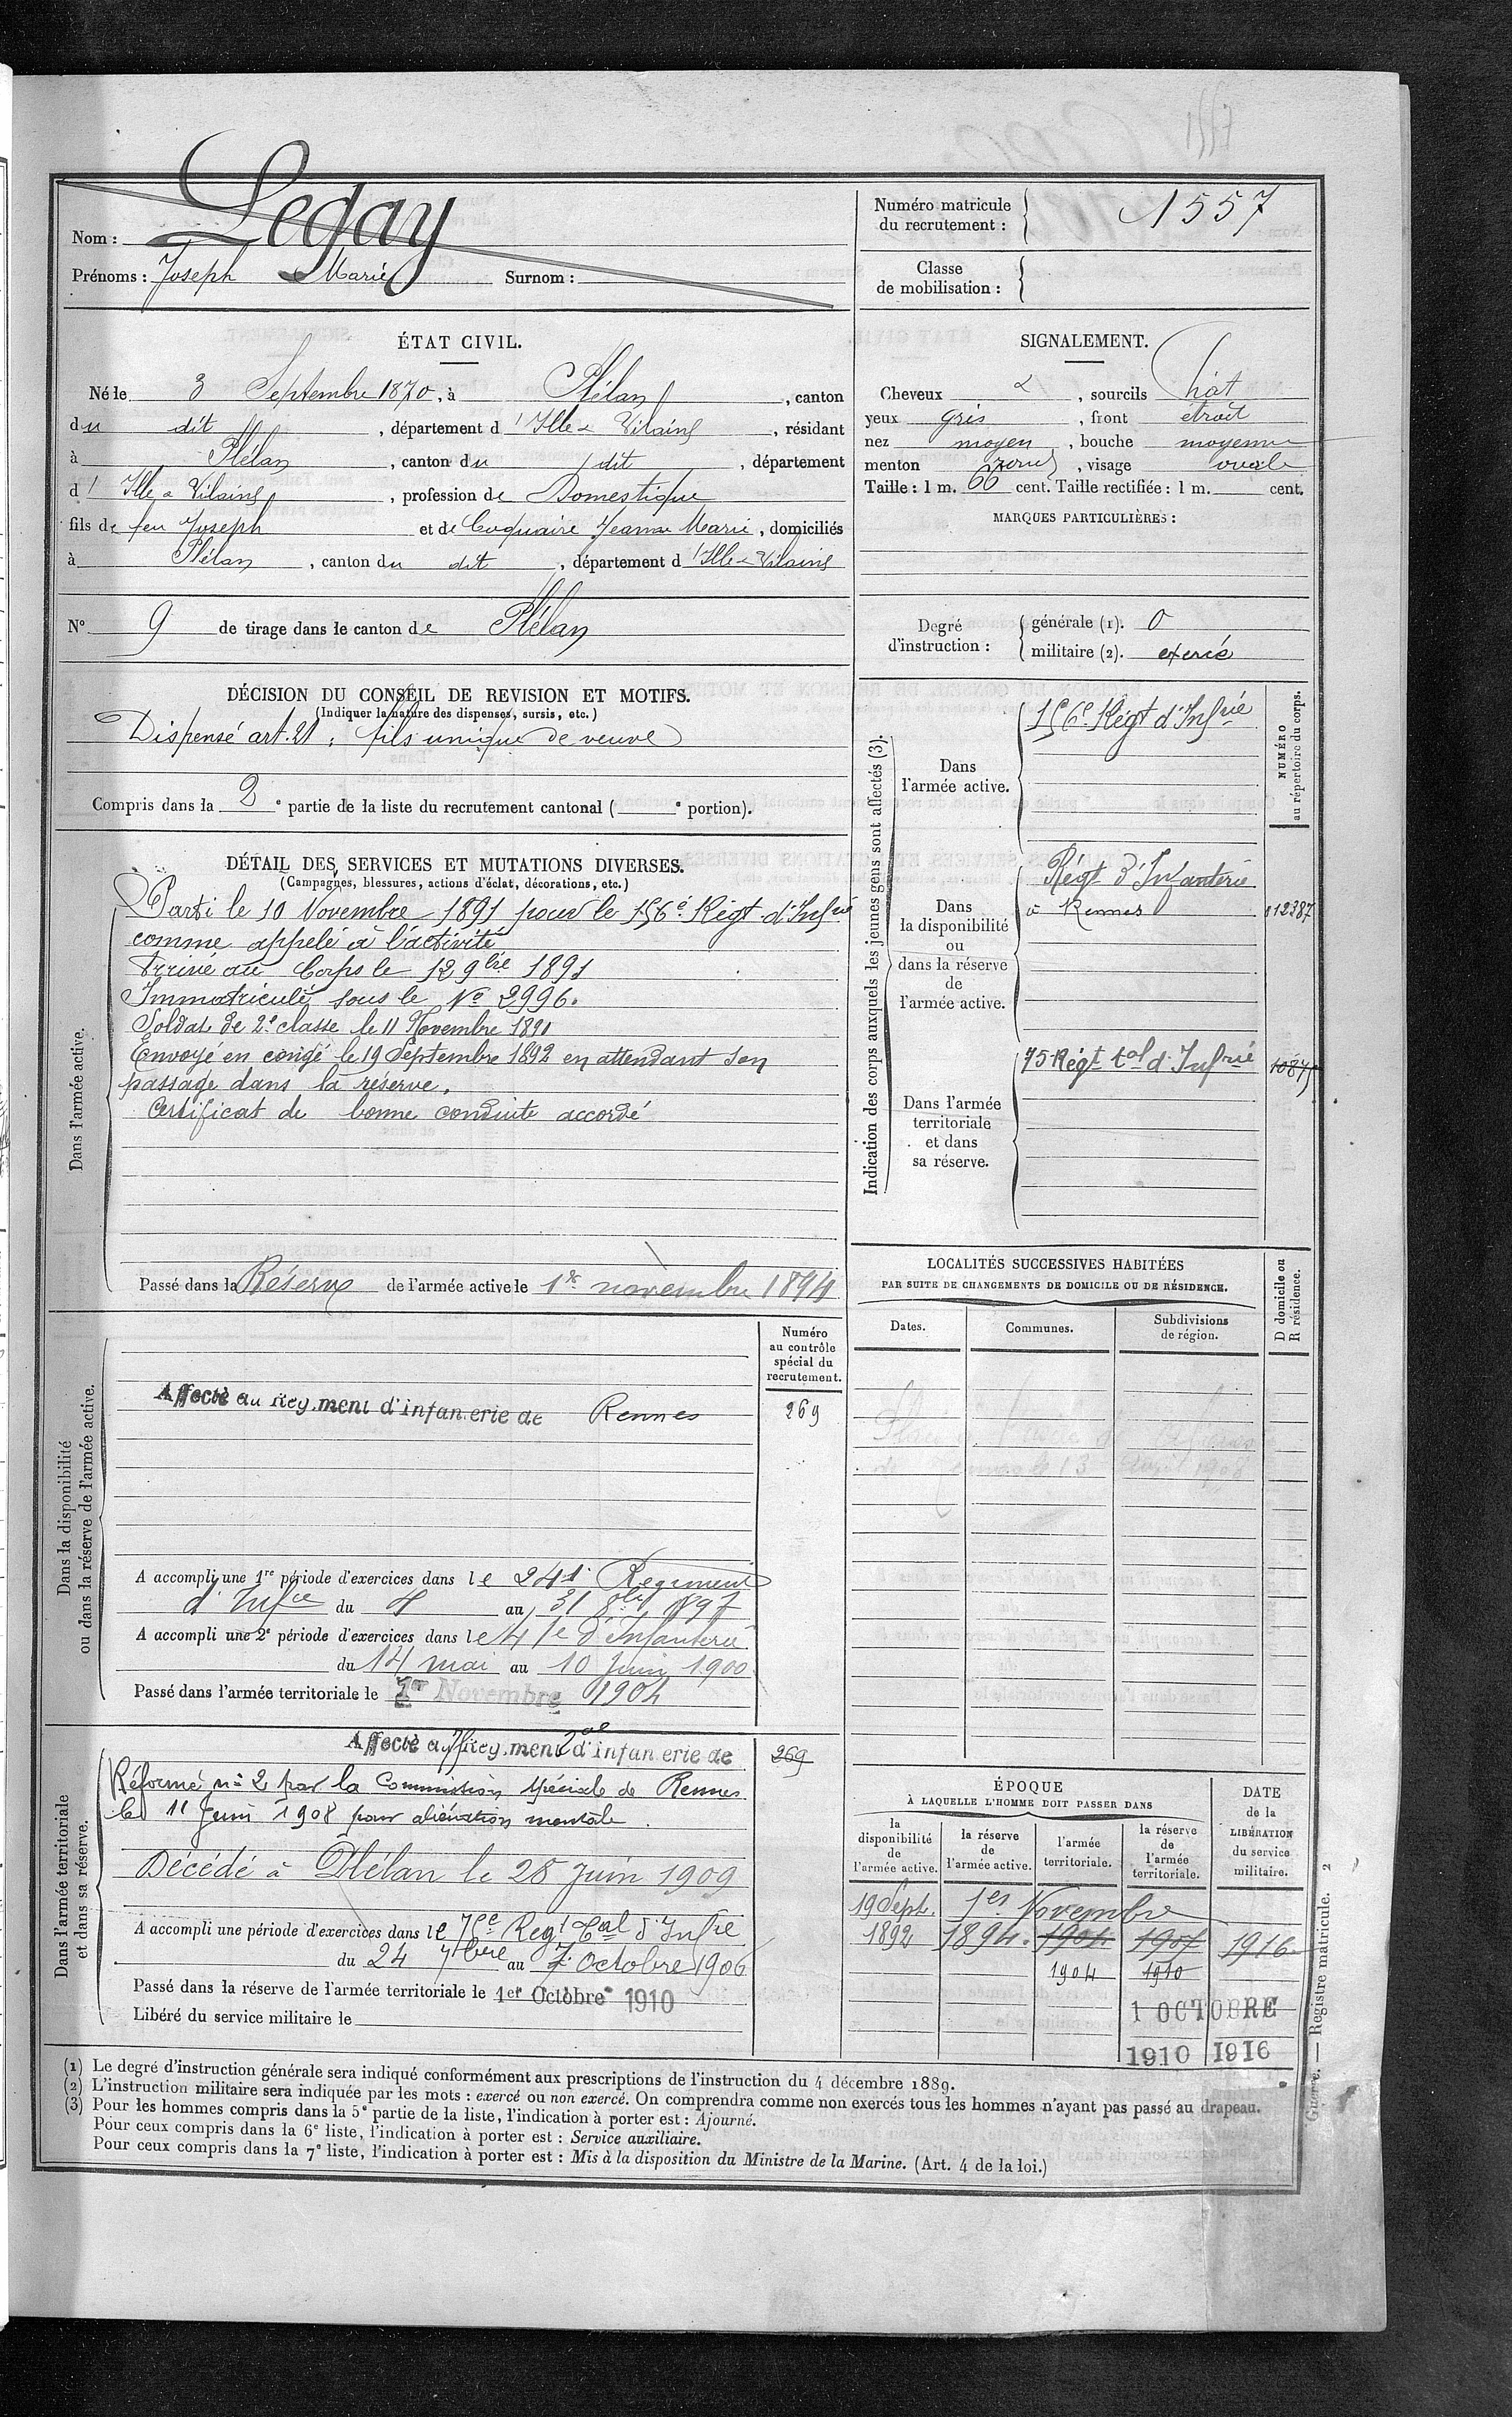 Nom : Legay
Prénoms : Joseph Marie Surnom :
Numéro matricule du recrutement : 1557
Classe de mobilisation :
ÉTAT CIVIL.
Né le 3 Septembre 1870, à Plélan, canton
du dit, département d'Ille & Vilaine, résidant
à Plélan, canton du dit, département
d'Ille & Vilaine, profession de Domestique
fils de feu Joseph et de Coquaire Jeanne Marie, domiciliés
à Plélan, canton du dit, département d'Ille & Vilaine
N° 9 de tirage dans le canton de Plélan
SIGNALEMENT.
Cheveux &, sourcils Chat
yeux gris, front étroit
nez moyen, bouche moyenne
menton rond, visage ovale
Taille : 1 m. 66 cent. Taille rectifiée : 1 m. cent.
MARQUES PARTICULIÈRES :
Degré d'instruction :
générale (1). 0
militaire (2). exercé
DÉCISION DU CONSEIL DE REVISION ET MOTIFS.
(Indiquer la nature des dispenses, sursis, etc.)
Dispensé art. 21 : fils unique de veuve
Compris dans la 2e partie de la liste du recrutement cantonal ( e portion).
DÉTAIL DES SERVICES ET MUTATIONS DIVERSES.
(Campagnes, blessures, actions d'éclat, décorations, etc.)
Dans l'armée active.
Parti le 10 Novembre 1891 pour le 156e Régt d'Infrie
comme appelé à l'activité
Arrivé au Corps le 12 9bre 1891
Immatriculé sous le No 2996.
Soldat de 2e classe le 11 Novembre 1891
Envoyé en congé le 19 Septembre 1892 en attendant son
passage dans la réserve.
Certificat de bonne conduite accordé
Passé dans la Réserve de l'armée active le 1er novembre 1894
Indication des corps auxquels les jeunes gens sont affectés (3).
NUMÉRO au répertoire du corps.
Dans l'armée active.
156e Régt d'Infrie
Dans la disponibilité ou dans la réserve de l'armée active.
Régt d'Infanterie
à Rennes
12387
Dans l'armée territoriale et dans sa réserve.
75 Régt tal d'Infrie
10875
LOCALITÉS SUCCESSIVES HABITÉES
PAR SUITE DE CHANGEMENTS DE DOMICILE OU DE RÉSIDENCE.
Dates.
Communes.
Subdivisions de région.
D domicile ou R résidence.
13 1908
Dans la disponibilité
ou dans la réserve de l'armée active.
Numéro
au contrôle
spécial du
recrutement.
Affecté au Rég.ment d'infanterie de Rennes
269
A accompli une 1re période d'exercices dans le 241e Régiment
d'Infie du 4 au 31 8bre 1897
A accompli une 2e période d'exercices dans le 41e d'Infanterie
du 14 mai au 10 Juin 1900
Passé dans l'armée territoriale le 1er Novembre 1904
Dans l'armée territoriale
et dans sa réserve.
Affecté au Rég.ment d'infanterie de
269
Réformé no 2 par la Commission spéciale de Rennes
le 11 Juin 1908 pour aliénation mentale.
Décédé à Plélan le 28 Juin 1909
A accompli une période d'exercices dans le 75e Régt Tal d'Infie
du 24 7bre au 7 Octobre 1906
Passé dans la réserve de l'armée territoriale le 1er Octobre 1910
Libéré du service militaire le
ÉPOQUE
À LAQUELLE L'HOMME DOIT PASSER DANS
la disponibilité de l'armée active.
la réserve de l'armée active.
l'armée territoriale.
la réserve de l'armée territoriale.
DATE de la LIBÉRATION du service militaire.
19 Sept. 1er Novembre
1892 1894. 1904 1907 1916
1904 1910
1 OCTOBRE
1910 1916
Guerre. — Registre matricule. 2
(1) Le degré d'instruction générale sera indiqué conformément aux prescriptions de l'instruction du 4 décembre 1889.
(2) L'instruction militaire sera indiquée par les mots : exercé ou non exercé. On comprendra comme non exercés tous les hommes n'ayant pas passé au drapeau.
(3) Pour les hommes compris dans la 5e partie de la liste, l'indication à porter est : Ajourné.
Pour ceux compris dans la 6e liste, l'indication à porter est : Service auxiliaire.
Pour ceux compris dans la 7e liste, l'indication à porter est : Mis à la disposition du Ministre de la Marine. (Art. 4 de la loi.)